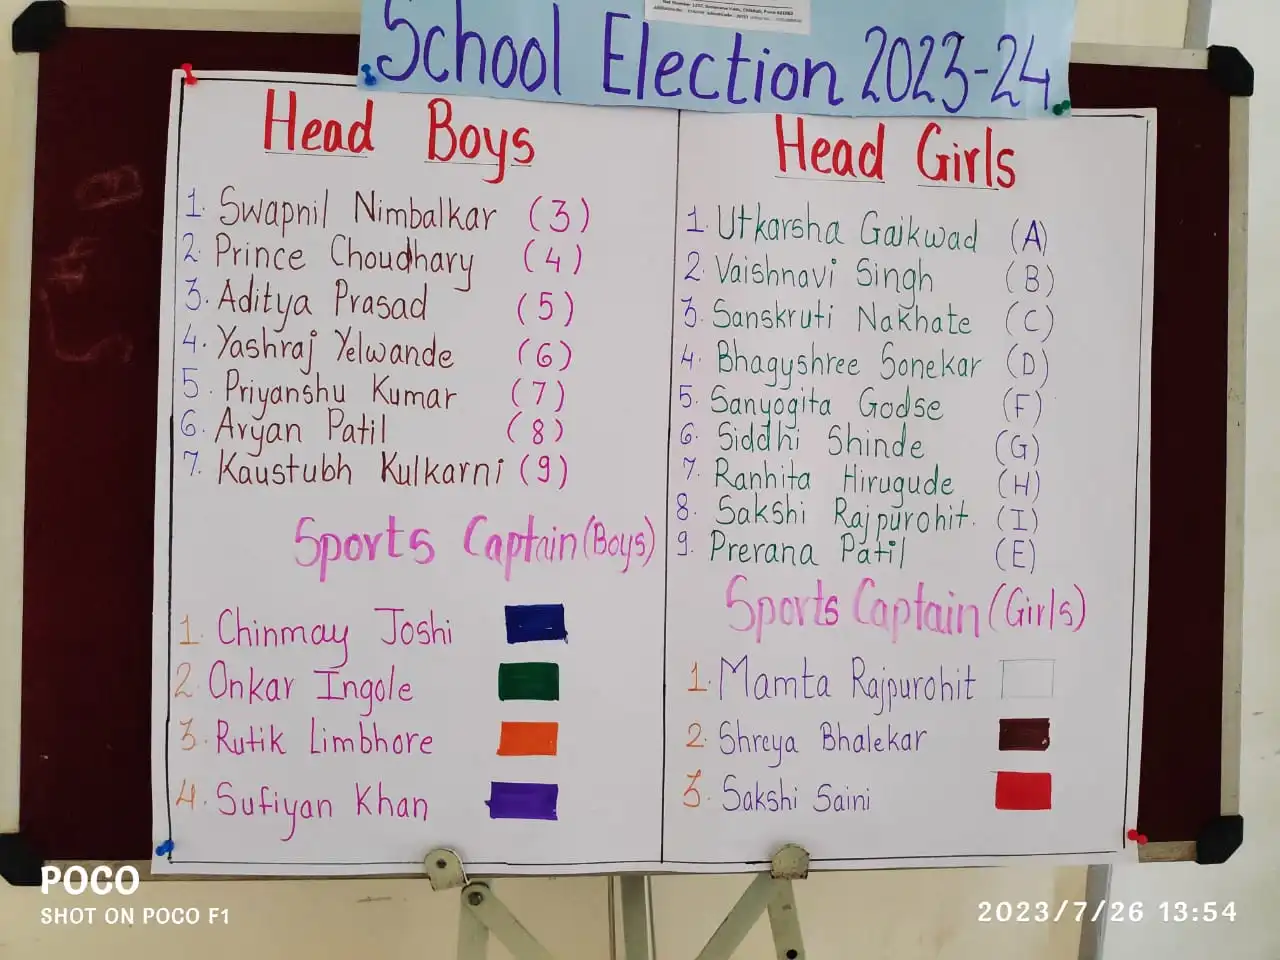 School Election 2023-24
Head Boys
1. Swapnil Nimbalkar (3)
2. Prince Choudhary (4)
3. Aditya Prasad (5)
4. Yashraj Yelwande (6)
5. Priyanshu Kumar (7)
6. Aryan Patil (8)
7. Kaustubh Kulkarni (9)
Sports Captain (Boys)
1. Chinmay Joshi
2. Onkar Ingole
3. Rutik Limbhore
4. Sufiyan Khan
Head Girls
1. Utkarsha Gaikwad (A)
2. Vaishnavi Singh (B)
3. Sanskruti Nakhate (C)
4. Bhagyshree Sonekar (D)
5. Sanyogita Godse (F)
6. Siddhi Shinde (G)
7. Ranhita Hirugude (H)
8. Sakshi Rajpurohit. (I)
9. Prerana Patil (E)
Sports Captain (Girls)
1. Mamta Rajpurohit
2. Shreya Bhalekar
3. Sakshi Saini
POCO
SHOT ON POCO F1
2023/7/26 13:54